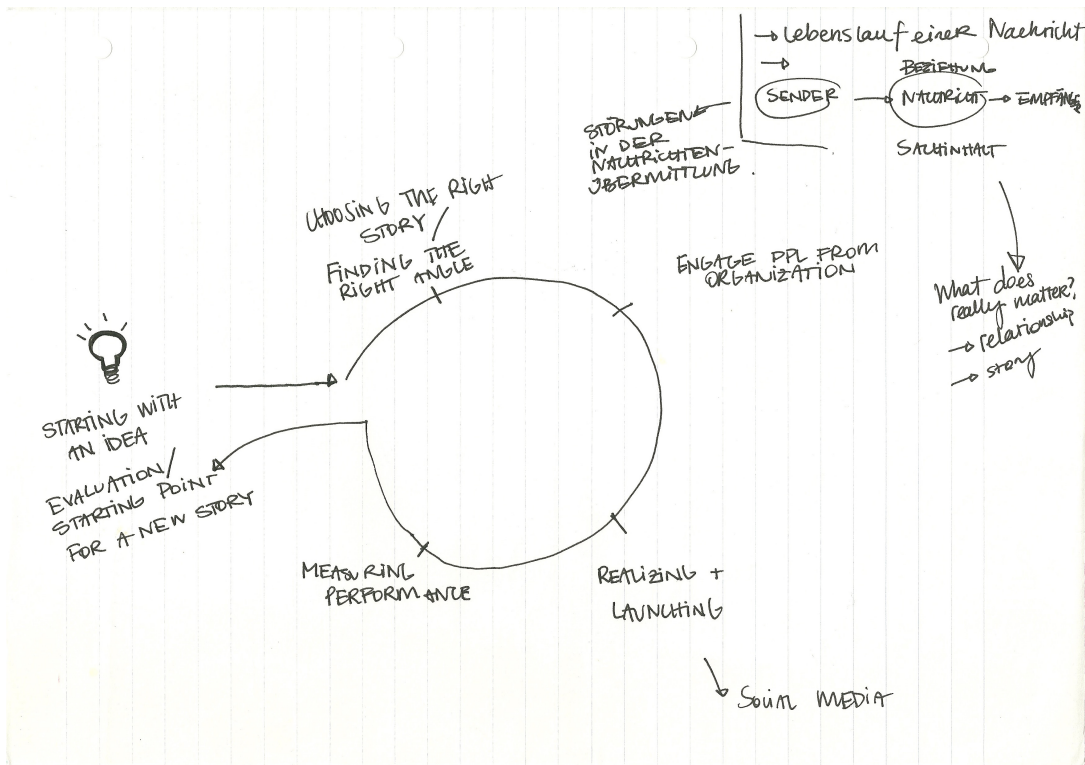 → Lebenslauf einer Nachricht
→
BEZIEHUNG
SENDER → NACHRICHT → EMPFÄNGER
SACHINHALT
STÖRUNGEN
IN DER
NACHRICHTEN-
ÜBERMITTLUNG.
What does
really matter?
→ relationship
→ story
CHOOSING THE RIGHT
STORY
FINDING THE
RIGHT ANGLE
ENGAGE PPL FROM
ORGANIZATION
STARTING WITH
AN IDEA
EVALUATION/
STARTING POINT
FOR A NEW STORY
MEASURING
PERFORMANCE
REALIZING +
LAUNCHING
SOCIAL MEDIA